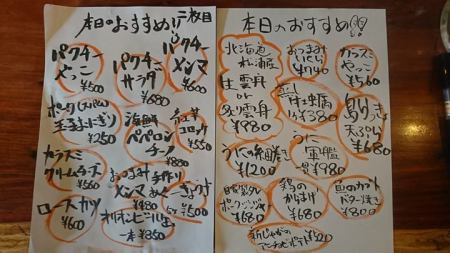 本日のおすすめ!! 二枚目
パクチー
やっこ
¥500
パクチー
サラダ
¥680
パクチー
メンマ
¥600
ポーク(スパム)
玉子おにぎり
¥250
海鮮
ペペロン
チーノ
¥880
コロッケ
¥550
カラスミ
クリームチーズ
¥560
おつまみ
メンマ
¥480
手作り
ぎょうざ
¥500
ロースカツ
¥600
オリオンビール
一本 ¥850
本日のおすすめ!!
北海道
松浦産
生雲丹
or
¥980
おつまみ
いくら
¥740
カラスミ
やっこ
¥560
¥380
天ぷら
¥680
うにの
¥1200
うに
軍艦
¥980
ポークジンジャー
¥680
鶏の
からあげ
¥680
魚のカマ
バター焼き
¥800
新じゃがの
アンチョビポテト ¥520